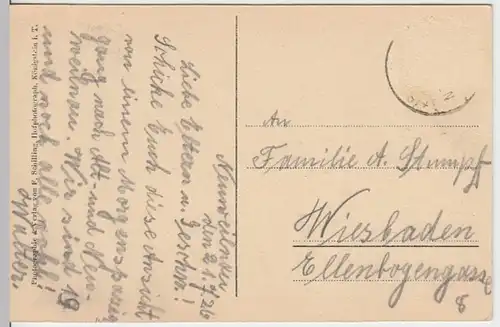 Neuweilnau
den 21.7.26
Liebe Eltern u. Geschw.!
Schicke Euch diese Ansicht
von einem Morgenspazier
gang nach Alt- und Neu-
weilnau. Wir sind 19
und noch alle wohl!
Walter
An
Familie A. Stumpf
Wiesbaden
Ellenbogengasse
8
Verlag von F. Schilling, Hofphotograph, Königstein i. T.